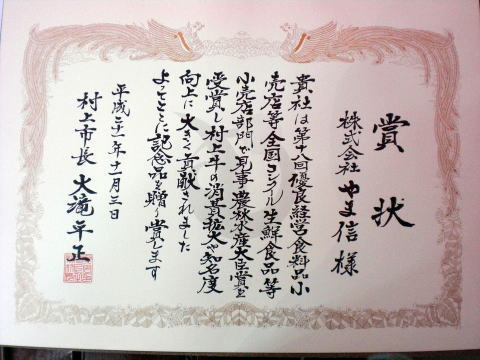 賞状
株式会社 やま信 様
貴社は第十八回優良経営食料品小
売店等全国コンクール生鮮食品等
小売店部門で見事農林水産大臣賞を
受賞し村上牛の消費拡大や知名度
向上に大きく貢献されました
よってここに記念品を贈り賞します
平成二十一年十一月三日
村上市長 大滝平正